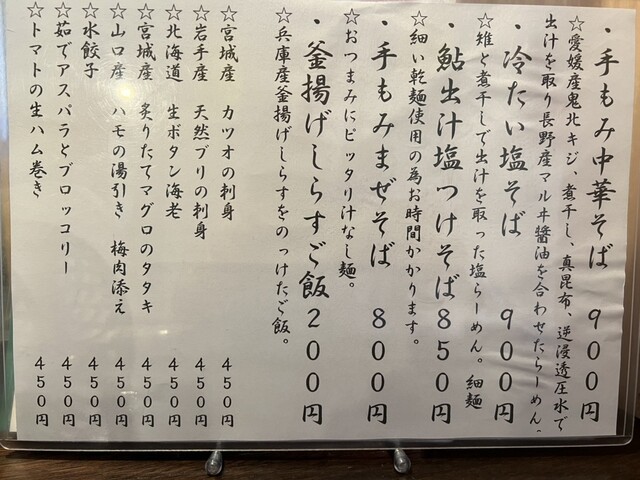 ・手もみ中華そば　９００円
☆愛媛産鬼北キジ、煮干し、真昆布、逆浸透圧水で
出汁を取り長野産マルヰ醤油を合わせたらーめん。
・冷たい塩そば　９００円
☆雉と煮干しで出汁を取った塩らーめん。細麺
・鮎出汁塩つけそば８５０円
☆細い乾麺使用の為お時間かかります。
・手もみまぜそば　８００円
☆おつまみにピッタリ汁なし麺。
・釜揚げしらすご飯２００円
☆兵庫産釜揚げしらすをのっけたご飯。
☆宮城産　カツオの刺身　４５０円
☆岩手産　天然ブリの刺身　４５０円
☆北海道　生ボタン海老　４５０円
☆宮城産　炙りたてマグロのタタキ　４５０円
☆山口産　ハモの湯引き　梅肉添え　４５０円
☆水餃子　４５０円
☆茹でアスパラとブロッコリー　４５０円
☆トマトの生ハム巻き　４５０円